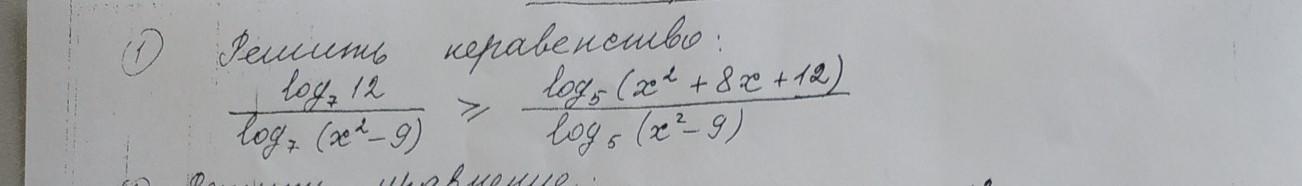 ① Решить неравенство:
log₇ 12 / log₇ (x² - 9) ⩾ log₅ (x² + 8x + 12) / log₅ (x² - 9)
уравнение: